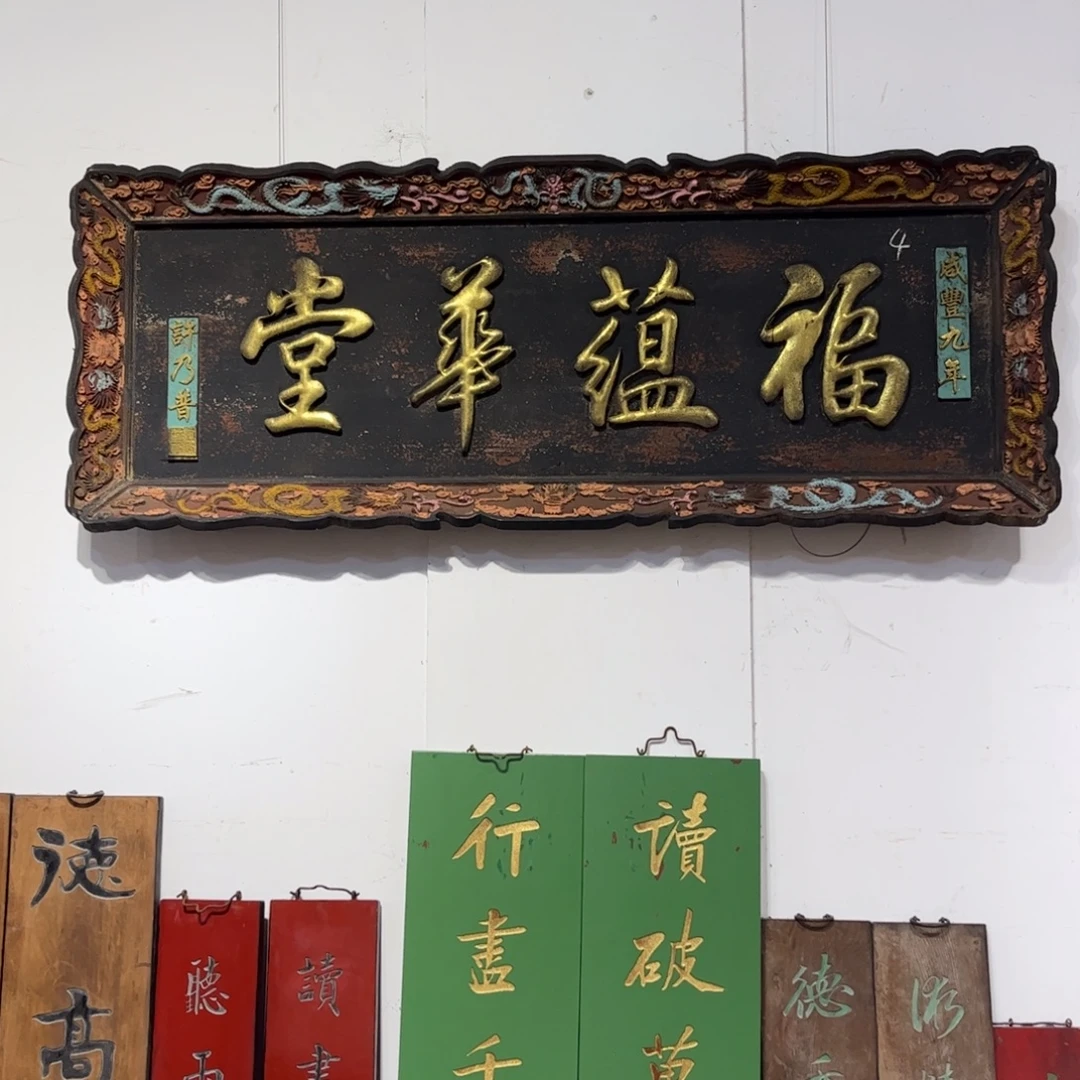 咸豐九年
福蘊華堂
許乃普
4
讀破萬
行盡千
德
術
讀書
聽雨
德高